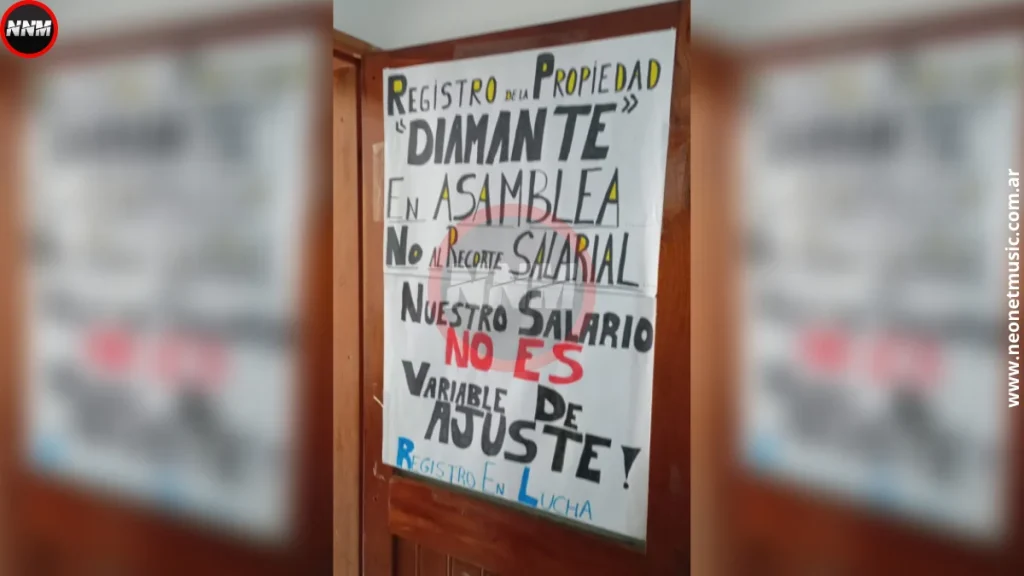 NNM
REGISTRO DE LA PROPIEDAD
"DIAMANTE"
EN ASAMBLEA
NO AL RECORTE SALARIAL
NUESTRO SALARIO
NO ES
VARIABLE DE
AJUSTE!
REGISTRO EN LUCHA
NNM
www.neonetmusic.com.ar